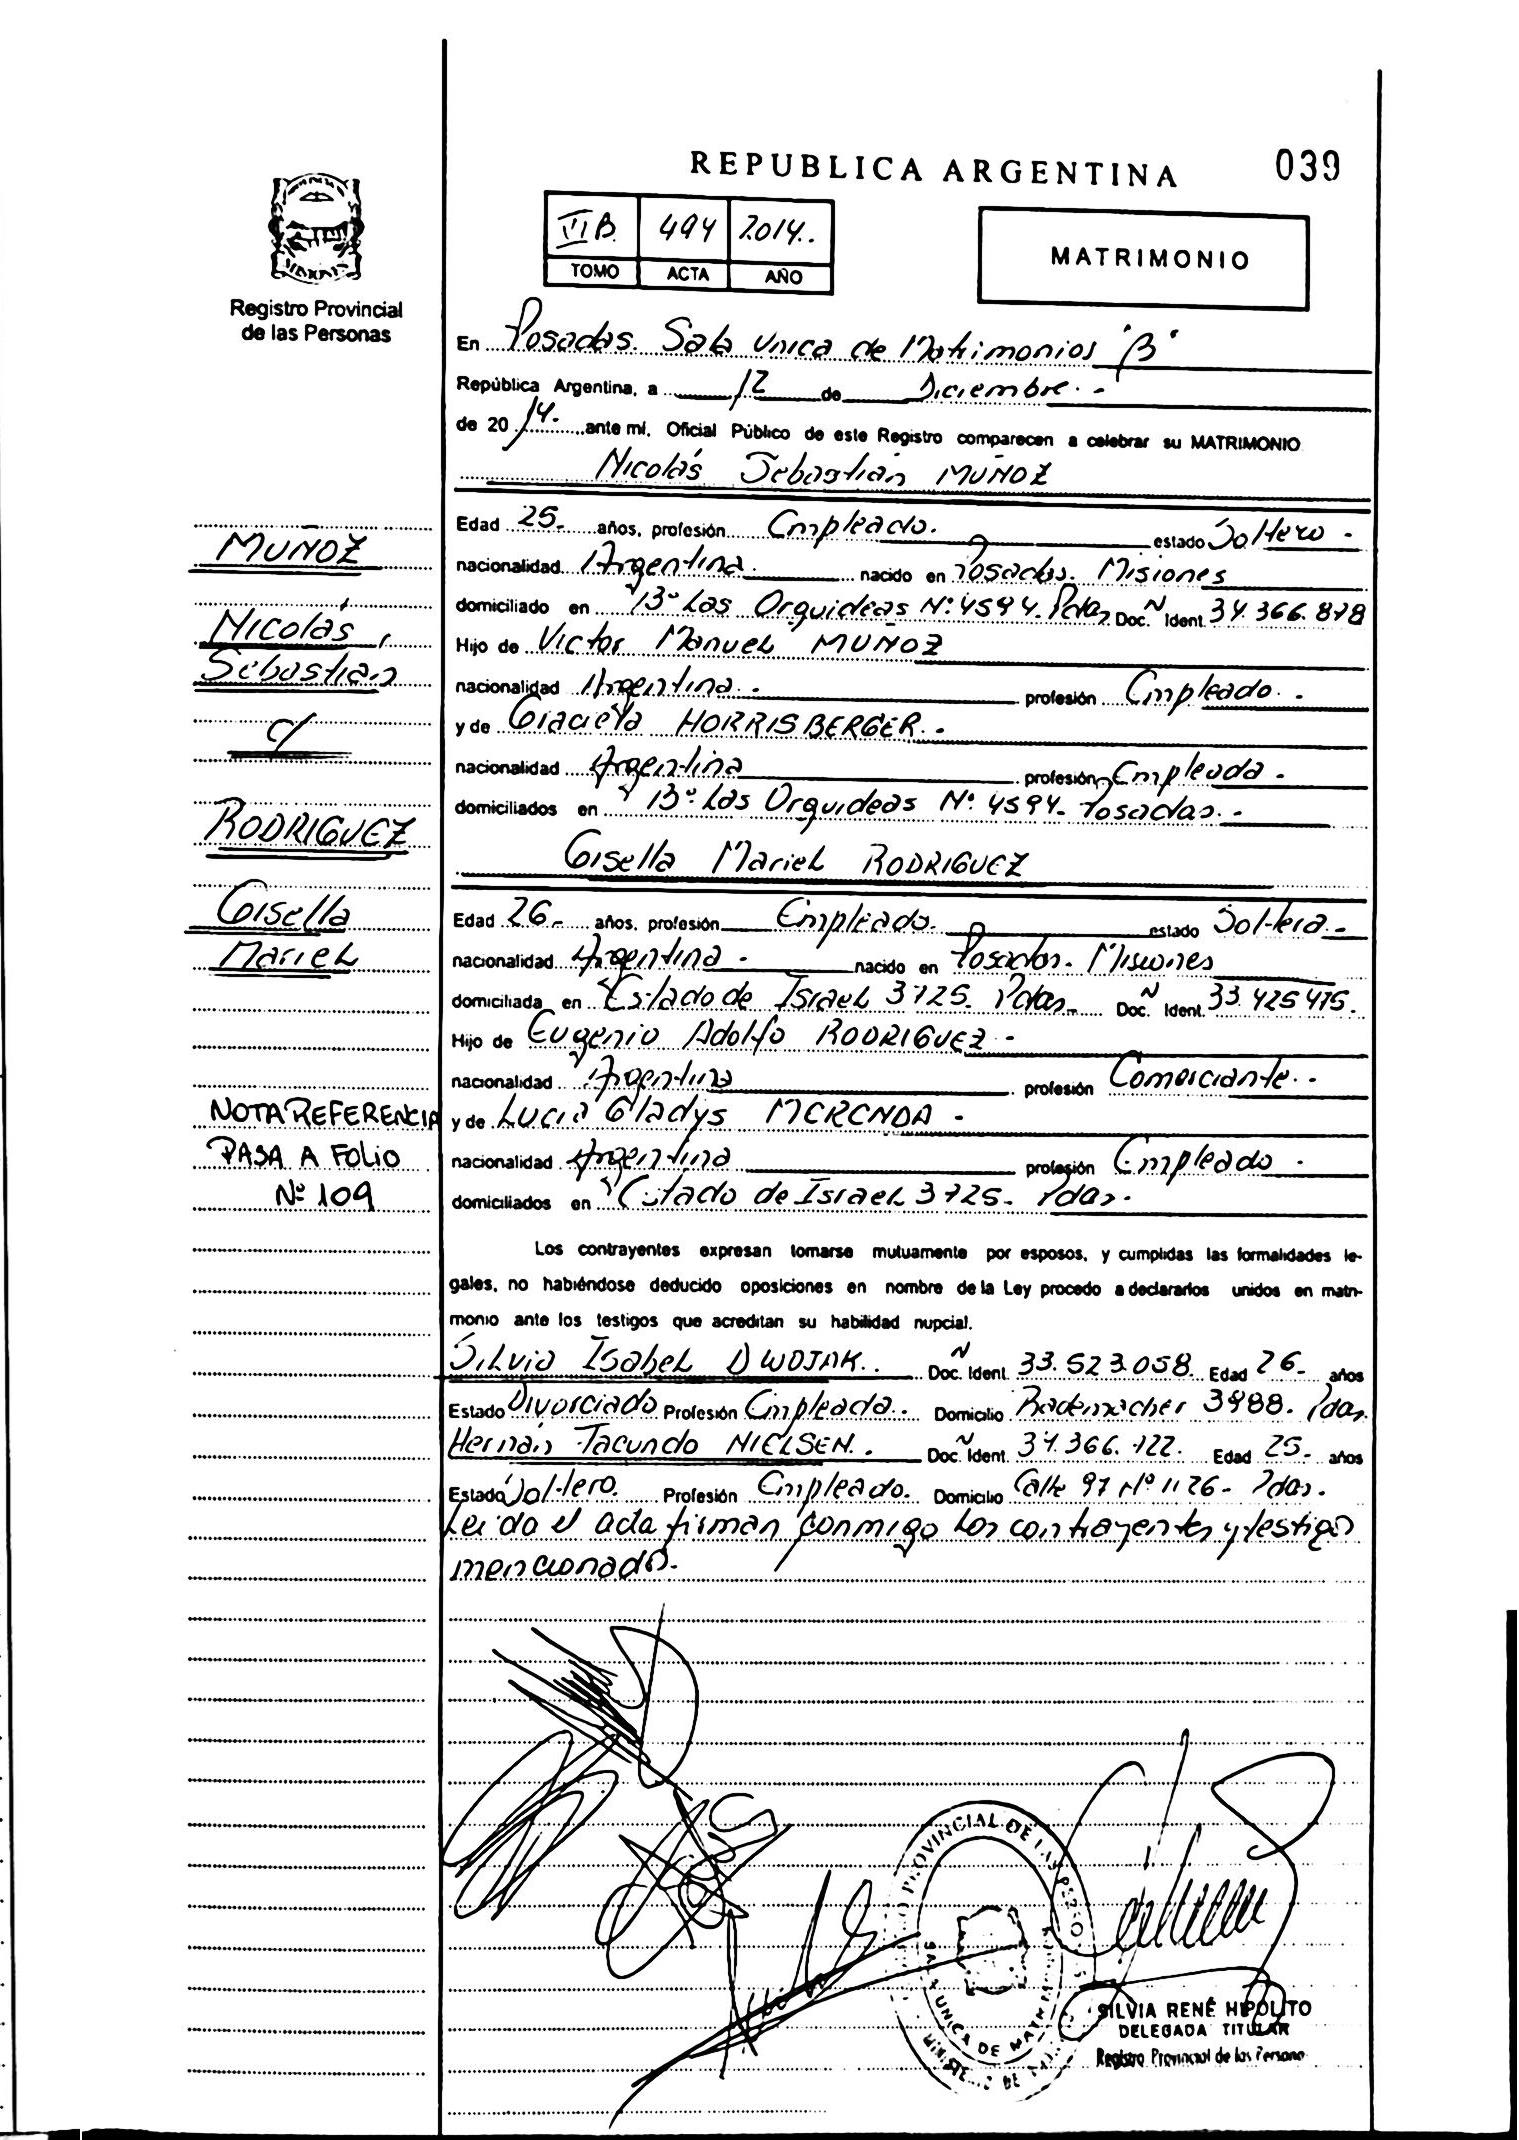 REPUBLICA ARGENTINA 039
Registro Provincial
de las Personas
VI B. 494 2.014..
TOMO ACTA AÑO
MATRIMONIO
En Posadas. Sala Unica de Matrimonios "B"
República Argentina, a 12 de Diciembre. -
de 2014. ante mí, Oficial Público de este Registro comparecen a celebrar su MATRIMONIO
Nicolás Sebastián MUÑOZ
Edad 25.- años, profesión Empleado. estado Soltero -
nacionalidad Argentina nacido en Posadas. Misiones
domiciliado en Bº Las Orquideas Nº 4594. Pdas Doc. N Ident. 34.366.878
Hijo de Victor Manuel MUÑOZ
nacionalidad Argentina. - profesión Empleado. -
y de Graciela HORRISBERGER. -
nacionalidad Argentina profesión Empleada. -
domiciliados en Bº Las Orquideas Nº 4594- Posadas. -
Gisella Mariel RODRIGUEZ
Edad 26.- años, profesión Empleado. estado Soltera -
nacionalidad Argentina - nacido en Posadas. Misiones
domiciliada en Estado de Israel 3725. Pdas. Doc. N Ident. 33.425475.
Hijo de Eugenio Adolfo RODRIGUEZ -
nacionalidad Argentina profesión Comerciante. -
y de Lucia Gladys MERENDA -
nacionalidad Argentina profesión Empleado -
domiciliados en Estado de Israel 3725- Pdas.
Los contrayentes expresan tomarse mutuamente por esposos, y cumplidas las formalidades le-
gales, no habiéndose deducido oposiciones en nombre de la Ley procedo a declararlos unidos en matri-
monio ante los testigos que acreditan su habilidad nupcial.
Silvia Isabel DWOJAK.. Doc. N Ident. 33.523.058. Edad 26- años
Estado Divorciado Profesión Empleada.. Domicilio Rademacher 3988. Pdas.
Hernán Facundo NIELSEN. - Doc. N Ident. 34.366.122. Edad 25- años
Estado Soltero. Profesión Empleado. Domicilio Calle 97 Nº 1126- Pdas.
Leido el acta firman conmigo los contrayentes y testigos
mencionados.-
MUÑOZ
Nicolás,
Sebastian
c/
RODRIGUEZ
Gisella
Mariel
NOTA REFERENCIA
PASA A FOLIO
Nº 109
PROVINCIAL DE LAS PERSO
SALA UNICA DE MATRIM
SILVIA RENÉ HIPOLITO
DELEGADA TITULAR
Registro Provincial de las Persona